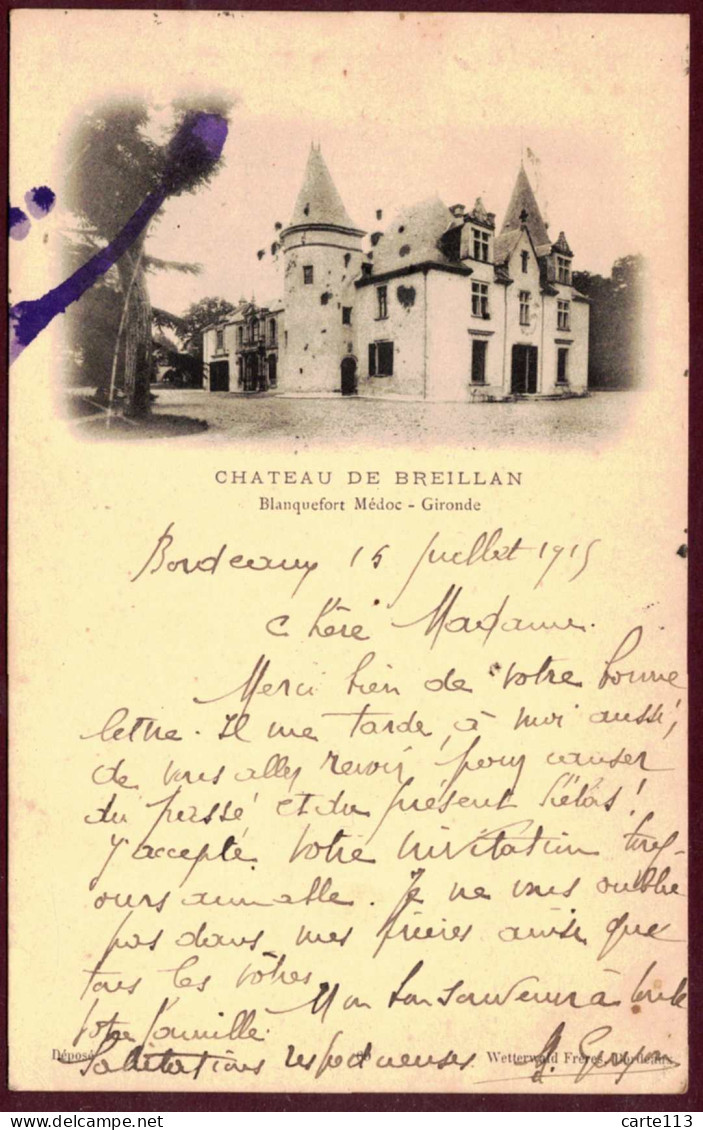 CHATEAU DE BREILLAN
Blanquefort Médoc - Gironde
Bordeaux 15 Juillet 1915
Chère Madame.
Merci bien de votre bonne
lettre. Il me tarde, à moi aussi,
de vous aller revoir pour causer
du passé et du présent hélas!
J'accepte votre invitation touj-
ours aimable. Je ne vous oublie
pas dans mes prières ainsi que
tous les vôtres
Mon bon souvenir à toute
votre famille.
Salutations respectueuses
Déposé
Wetterwald Frères, Bordeaux
carte113
© delcampe.net